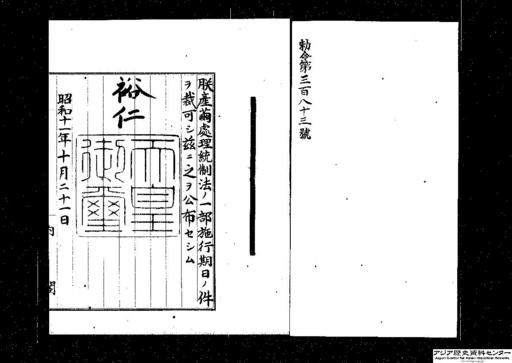 勅令第三百八十三號
朕産繭處理統制法ノ一部施行期日ノ件
ヲ裁可シ茲ニ之ヲ公布セシム
裕仁
天皇
御璽
昭和十一年十月二十一日
内閣
アジア歴史資料センター
Japan Center for Asian Historical Records